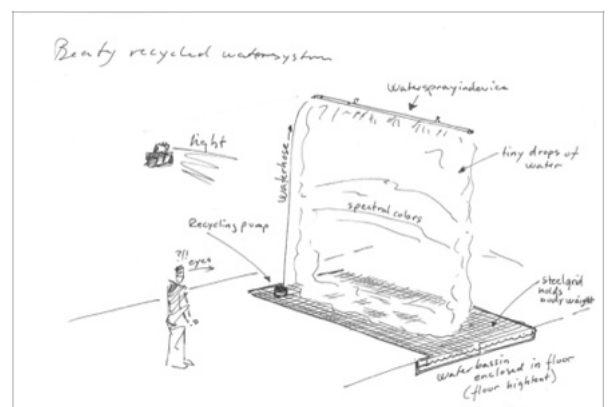 Beauty recycled watersystem
Watersprayindevice
light
tiny drops of
water
Waterhose
spectral colors
Recycling pump
?!!
eyes
steelgrid
holds
bodyweight
waterbassin
enclosed in floor
(floor hightent)